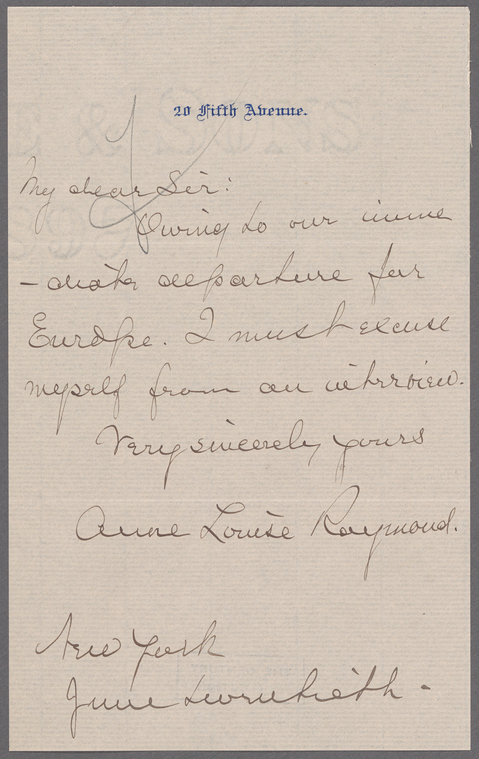 20 Fifth Avenue.
My dear Sir:
Owing to our imme
-diate departure for
Europe. I must excuse
myself from an interview.
Very sincerely yours
Anne Louise Raymond.
New York
June twentieth.